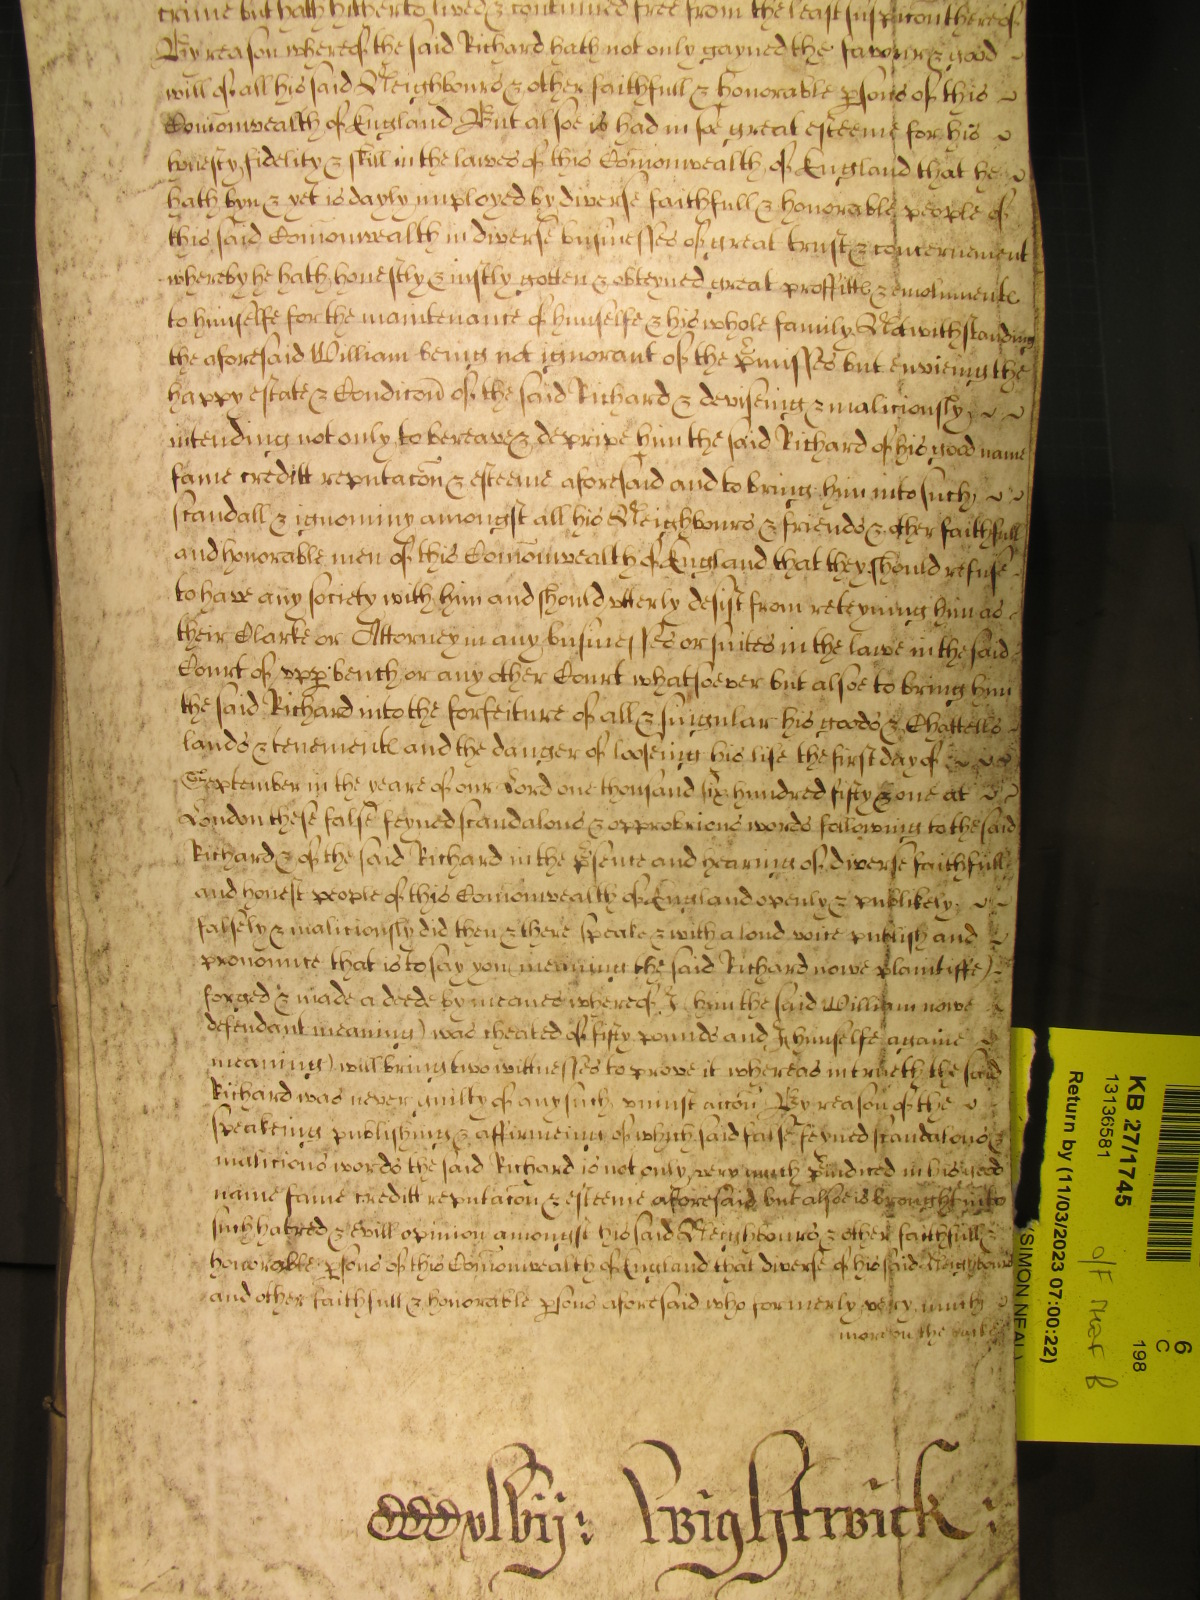 crime but hath hitherto lived & continued free from the least suspicon thereof
By reason whereof the said Richard hath not only gayned the favour & good
will of all his said Neighbours & other faithfull & honorable psons of this
Comonwealth of England But alsoe is had in soe great esteeme for his
honesty fidelity & skill in the lawes of this Comonwealth of England that he
hath byn & yet is dayly imployed by diverse faithfull & honorable people of
this said Comonwealth in diverse businesses of great trust & concernement
whereby he hath honestly & justly gotten & obteyned great proffitts & emolumente
to himselfe for the maintenance of himselfe & his whole family Notwithstanding
the aforesaid William being not ignorant of the pmisses but envieing the
happy estate & Condicon of the said Richard & deviseing & maliciously
intending not only to bereave & deprive him the said Richard of his good name
fame creditt reputacon & esteeme aforesaid and to bring him into such
scandall & ignominy amongst all his Neighbours & friends & other faithfull
and honorable men of this Comonwealth of England that they should refuse
to have any society with him and should utterly desist from reteyning him as
their Clarke or Attorney in any businesses or suites in the lawe in the said
Court of upp bench or any other Court whatsoever but alsoe to bring him
the said Richard into the forfeiture of all & singular his goods & Chattells
lands & tenemente and the danger of looseing his life the first day of
September in the yeare of our Lord one thousand six hundred fifty & one at
London these false feyned scandalous & opprobrious words following to the said
Richard & of the said Richard in the psence and hearing of diverse faithfull
and honest people of this Comonwealth of England openly & publikely
falsely & maliciously did then & there speake & with a loud voice publish and
pronounce that is to say you (meaning the said Richard nowe plaintiffe)
forged & made a deede by meanes whereof I (him the said William nowe
defendant meaning) was cheated of fifty pounds and I (himselfe againe
meaning) will bring two wittnesses to prove it whereas in trueth the said
Richard was never guilty of any such uniust accon By reason of the
speakeing publishing & affirmeing of which said false feyned scandalous &
malicious words the said Richard is not only very much piudiced in his good
name fame creditt reputacon & esteeme aforesaid but alsoe is brought into
such hatred & evill opinion amongst his said Neighbours & other faithfull &
honorable psons of this Comonwealth of England that diverse of his said Neighbours
and other faithfull & honorable psons aforesaid who formerly very much
more on the
Wightwick:
KB 27/1745
13136581
Return by (11/03/2023 07:00:22)
(SIMON NEAL)
6
C
198